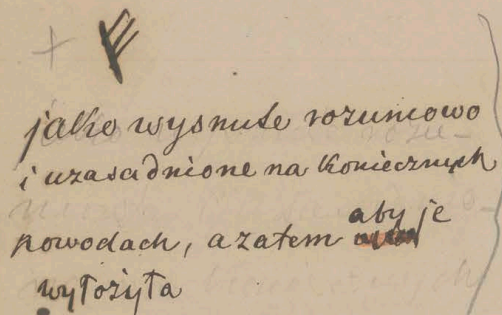 jako wysnute rozumowo
i uzasadnione na koniecznych
powodach, a zatem aby je
wyłożyła